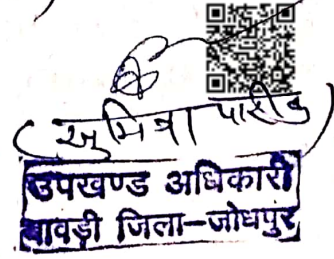 (सुमित्रा पारीक)
उपखण्ड अधिकारी
बावड़ी जिला-जोधपुर